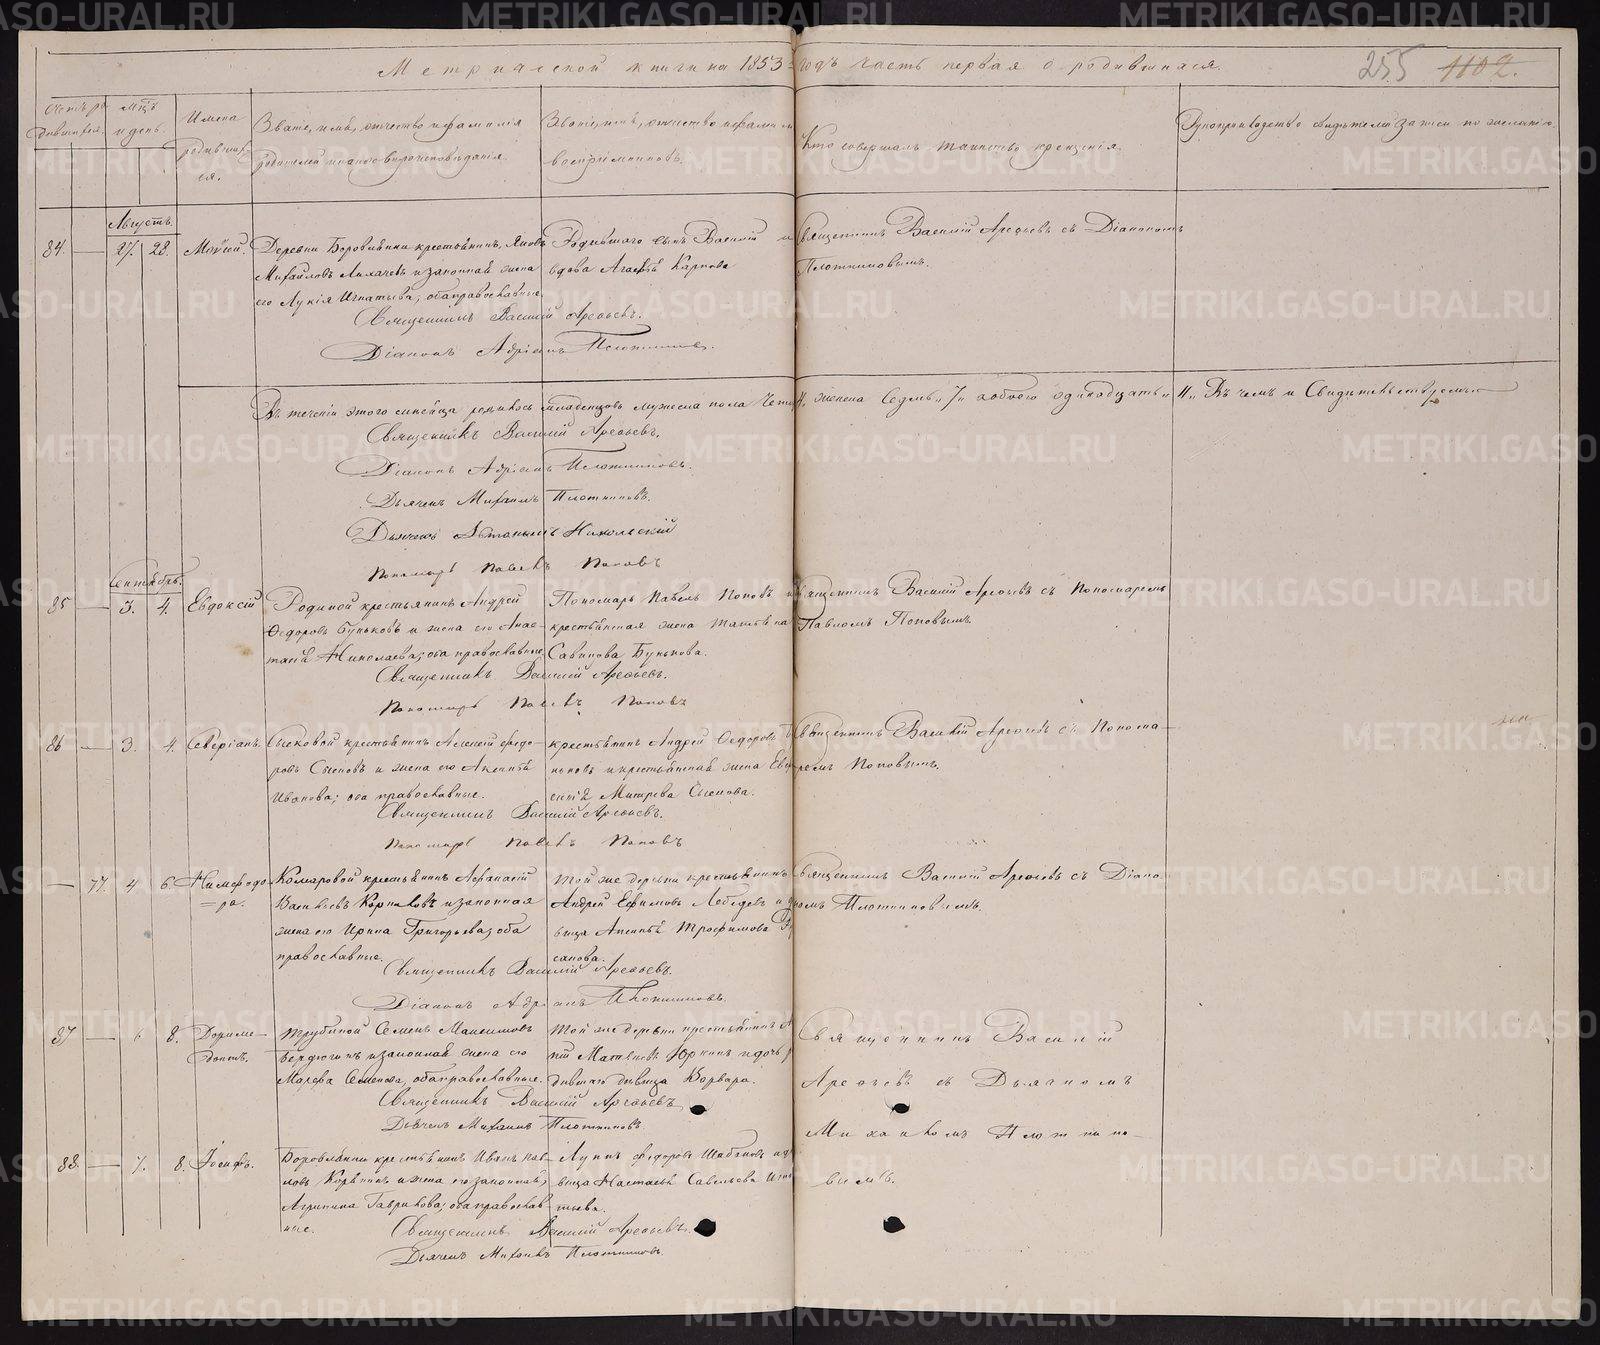 Метрической книги на 1853 годъ часть первая о родившихся.
255 1102.
Счетъ родившихся.
Мѣсяцъ и день.
Имена родившихся.
Званіе, имя, отчество и фамилія
родителей и какого вѣроисповѣданія.
Званіе, имя, отчество и фамилія
воспріемниковъ.
Кто совершалъ таинство крещенія.
Рукоприкладство свидѣтелей записи по желанію.
Августъ.
84. — 27. 28. Моисей.
Деревни Боровлянки крестьянинъ Яковъ
Михайловъ Лихачевъ и законная жена
его Лукія Игнатьева, оба православные.
Родившаго сынъ Василій и
вдова Агафья Карпова
Священникъ Василій Арефьевъ съ Діакономъ
Плотниковымъ.
Священникъ Василій Арефьевъ.
Діаконъ Адріанъ Плотниковъ.
Въ теченіи этого мѣсяца родилось младенцовъ мужеска пола Четыре 4. женска Седмь „7„ а обоего одинадцать„ 11„ Въ чемъ и Свидѣтельствуемъ
Священникъ Василій Арефьевъ.
Діаконъ Адріанъ Плотниковъ.
Дьячекъ Михаилъ Плотниковъ.
Дьячекъ Никольскій
Пономарь Павелъ Поповъ
Сентябрь.
85 — 3. 4. Евдоксій
Родиной крестьянинъ Андрей
Ѳедоровъ Буньковъ и жена его Анас-
тасія Николаева; оба православные.
Пономарь Павелъ Поповъ и
крестьянская жена Татьяна
Савинова Бунькова.
Священникъ Василій Арефьевъ съ Пономаремъ
Павломъ Поповымъ.
Священникъ Василій Арефьевъ.
Пономарь Павелъ Поповъ
86 — 3. 4. Северіанъ.
Сысковой крестьянинъ Алексей Ѳедо-
ровъ Сысковъ и жена его Аксинья
Иванова; оба православные.
крестьянинъ Андрей Ѳедоровъ
ньковъ и крестьянская жена
Сыскова.
Священникъ Василій Арефьевъ съ Понома-
ремъ Поповымъ.
Священникъ Василій Арефьевъ.
Пономарь Павелъ Поповъ
— 77. 4 6. Нимфодо-
ра.
Комаровой крестьянинъ Афанасій
Васильевъ и законная
жена его Ирина Григорьева; оба
православные.
Той же деревни крестьянинъ
Андрей Ефимовъ Лебедевъ и де-
вица Аксинья Трофимова
Священникъ Василій Арефьевъ съ Діако-
номъ Плотниковымъ.
Священникъ Василій Арефьевъ.
Діаконъ Адріанъ Плотниковъ.
87 — 6 8. Дориме-
донтъ.
Трубиной Семенъ Максимовъ
Вердюгинъ и законная жена его
Марѳа Семенова, оба православные.
Той же деревни крестьянинъ
Матвѣевъ Юринъ и дочь ро-
дившаго дѣвица Варвара.
Священникъ Василій
Арефьевъ съ Дьячкомъ
Михаиломъ Плотнико-
вымъ.
Священникъ Василій Арефьевъ
Дьячекъ Михаилъ Плотниковъ
88. — 7. 8. Іосифъ.
Боровлянки крестьянинъ Иванъ Пав-
ловъ и жена его законная
Агрипина Гаврилова; оба православ-
ные.
Лука Ѳедоровъ и дѣ-
вица Настасья Савельева Игна-
тьева.
Священникъ Василій Арефьевъ.
Дьячекъ Михаилъ Плотниковъ.
METRIKI.GASO-URAL.RU